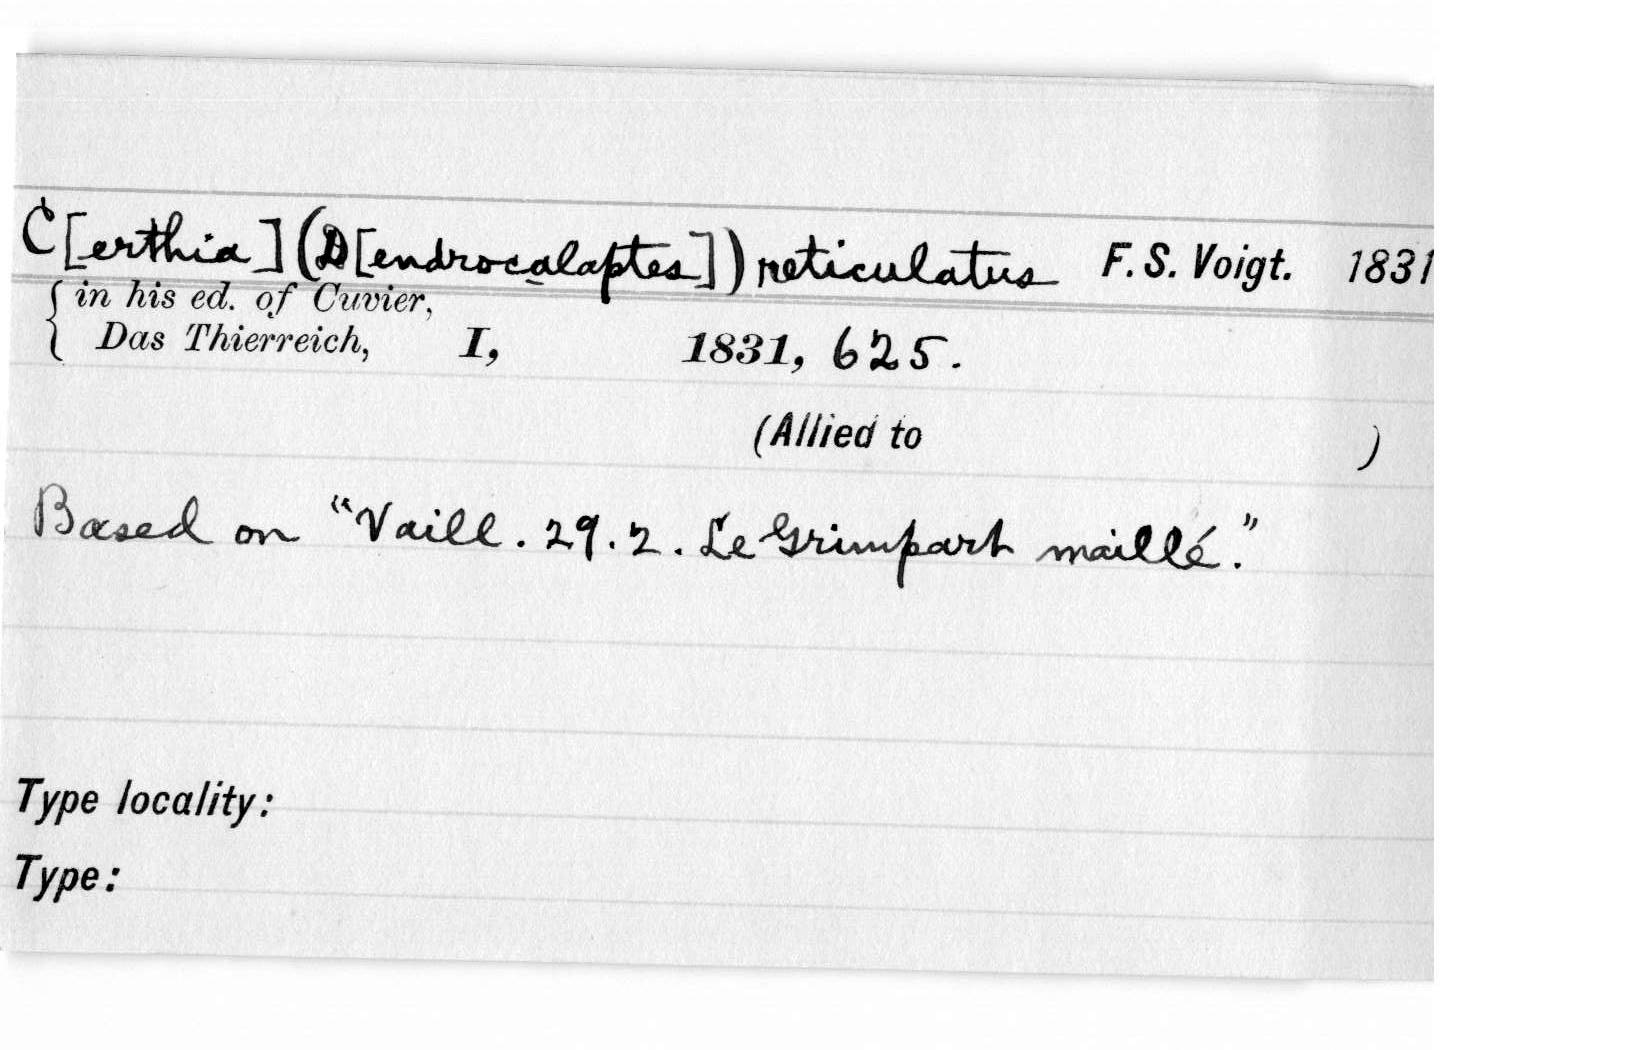 C[erthia] (D[endrocalaptes]) reticulatus F. S. Voigt. 1831
in his ed. of Cuvier,
Das Thierreich, I, 1831, 625.
(Allied to )
Based on "Vaill. 29.2. Le Grimpart maillé."
Type locality:
Type: